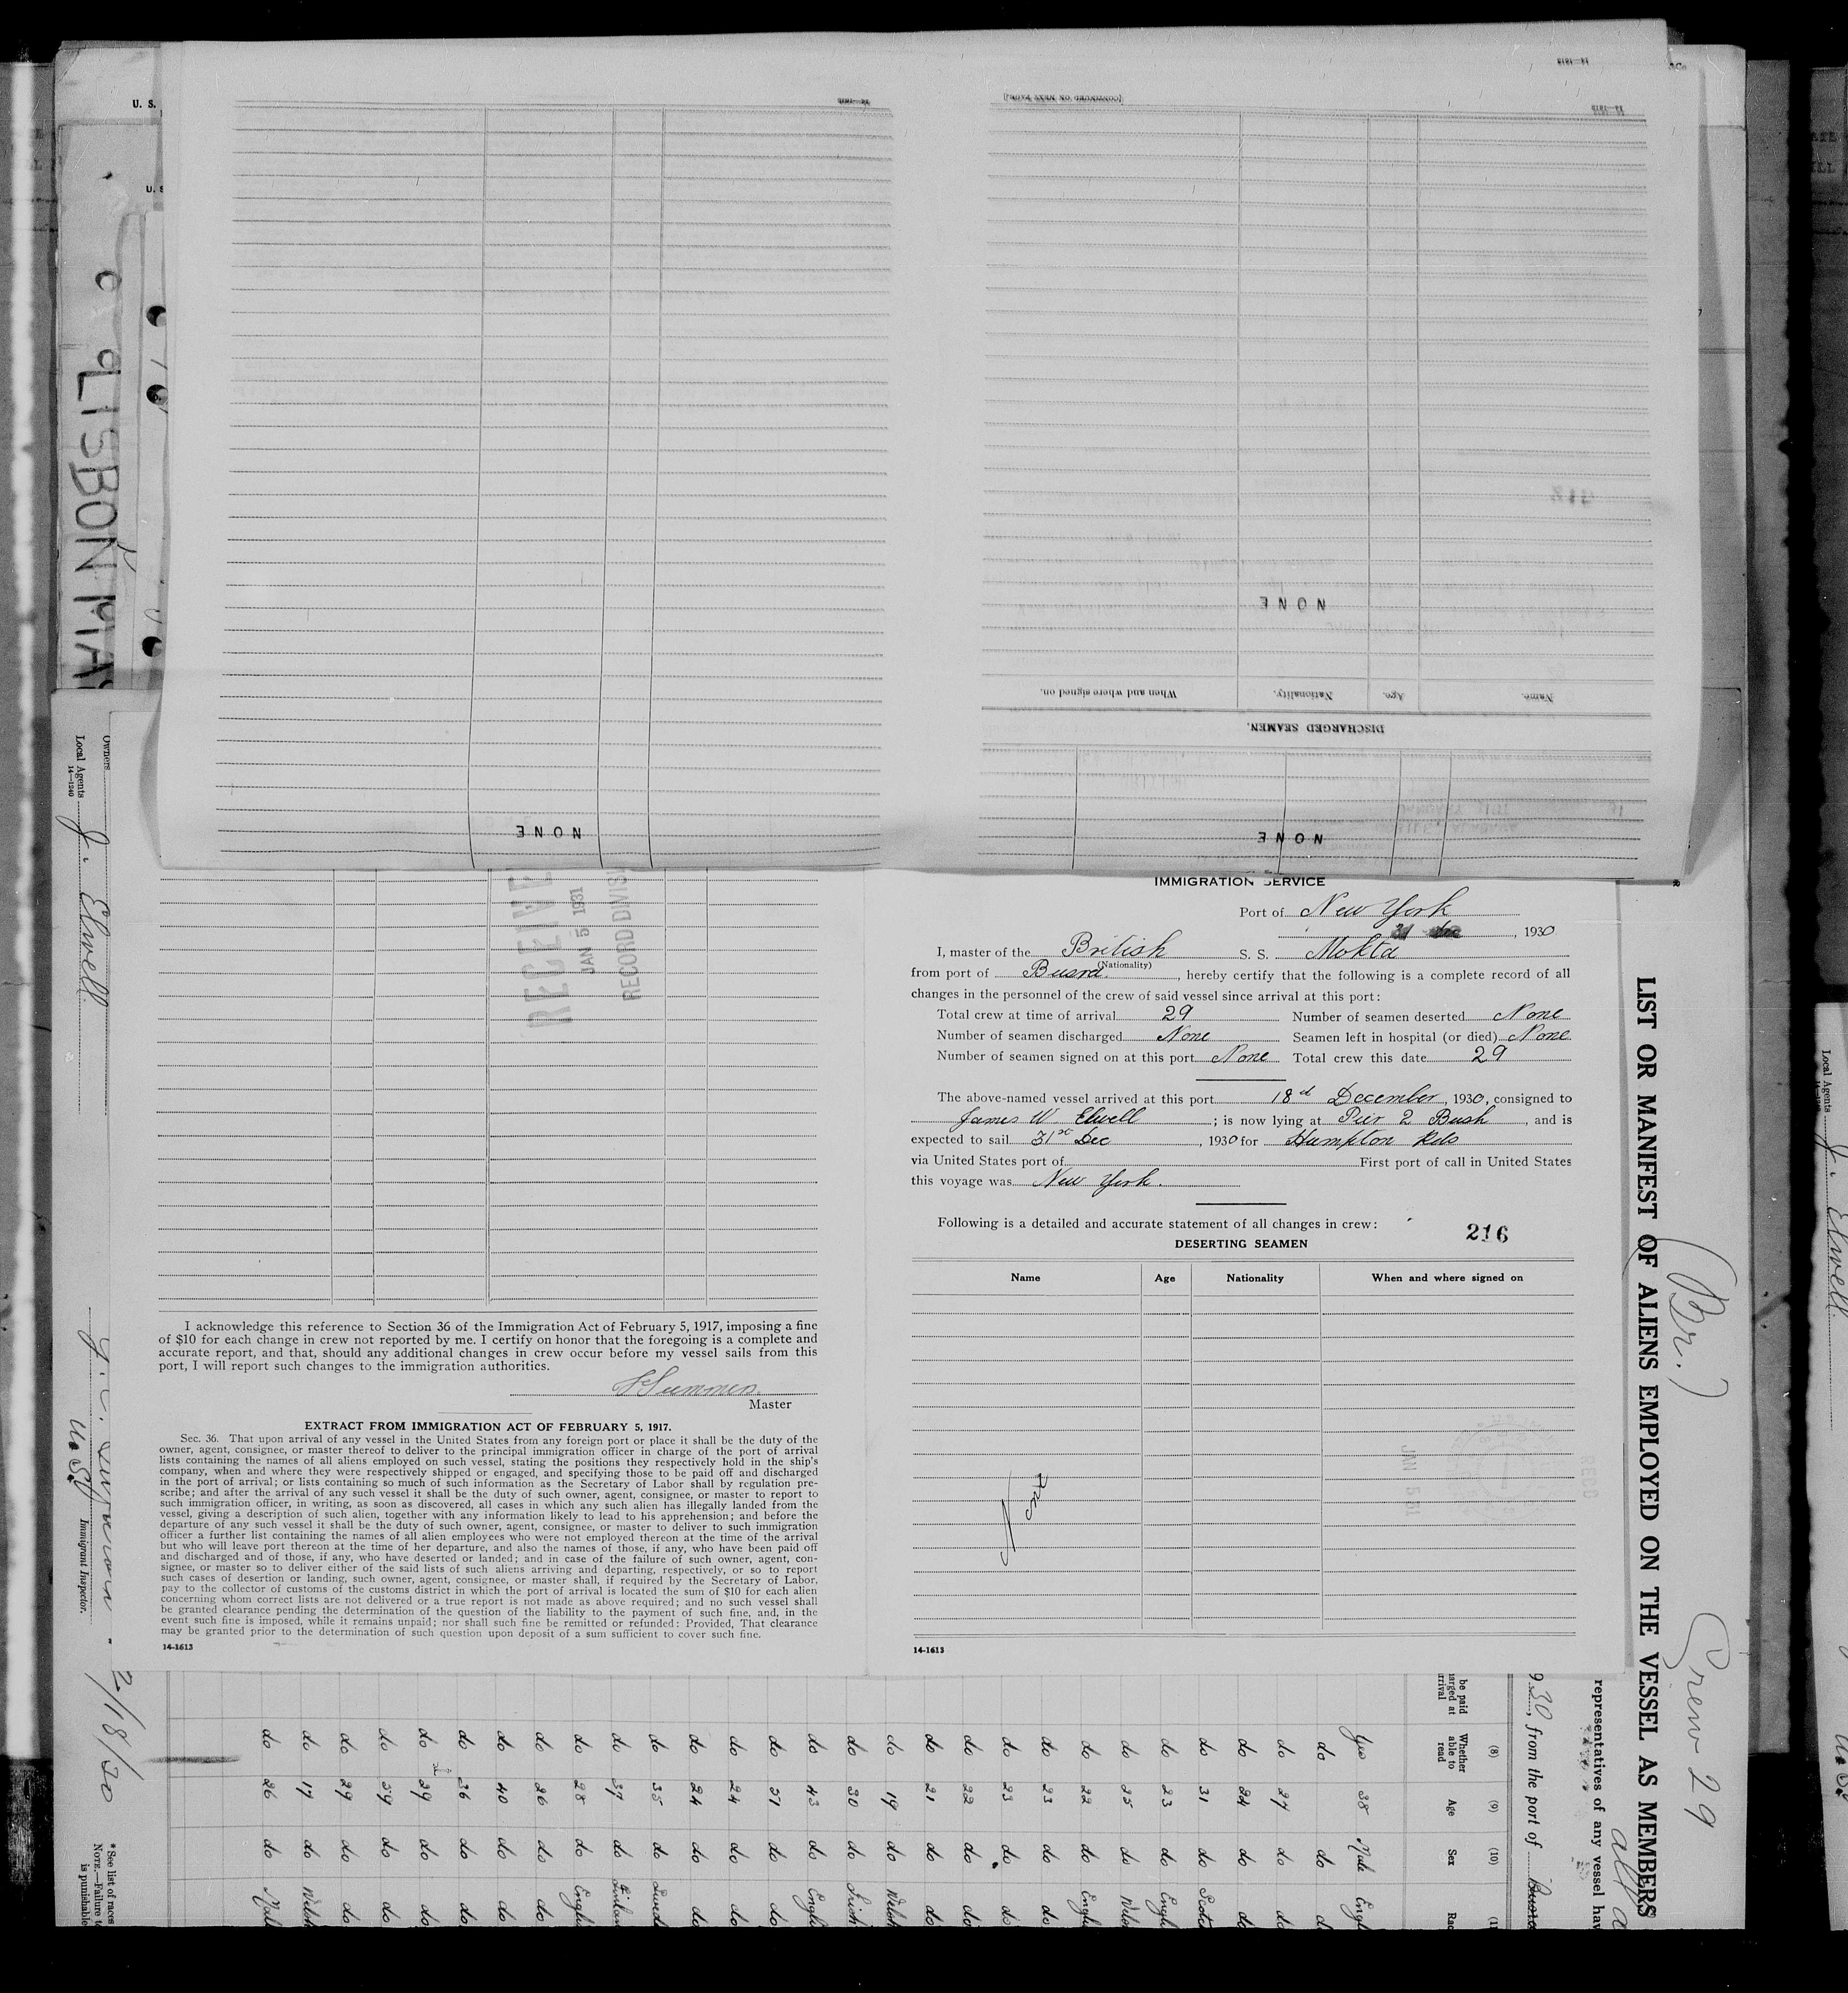 U. S.
U. S
LISBON MA
14-1613
[CONTINUED ON NEXT PAGE]
14-1613
14-1613
NONE
When and where signed on.
Nationality.
Age.
Name.
DISCHARGED SEAMEN.
NONE
NONE
Owners
Local Agents J. Elwell
14-1240
Immigrant Inspector.
2/18/30
*See list of races
NOTE.—Failure t
is punishable
RECEIVE
JAN 5 1931
RECORD DIVISI
I acknowledge this reference to Section 36 of the Immigration Act of February 5, 1917, imposing a fine
of $10 for each change in crew not reported by me. I certify on honor that the foregoing is a complete and
accurate report, and that, should any additional changes in crew occur before my vessel sails from this
port, I will report such changes to the immigration authorities.
Master
EXTRACT FROM IMMIGRATION ACT OF FEBRUARY 5, 1917.
Sec. 36. That upon arrival of any vessel in the United States from any foreign port or place it shall be the duty of the
owner, agent, consignee, or master thereof to deliver to the principal immigration officer in charge of the port of arrival
lists containing the names of all aliens employed on such vessel, stating the positions they respectively hold in the ship's
company, when and where they were respectively shipped or engaged, and specifying those to be paid off and discharged
in the port of arrival; or lists containing so much of such information as the Secretary of Labor shall by regulation pre-
scribe; and after the arrival of any such vessel it shall be the duty of such owner, agent, consignee, or master to report to
such immigration officer, in writing, as soon as discovered, all cases in which any such alien has illegally landed from the
vessel, giving a description of such alien, together with any information likely to lead to his apprehension; and before the
departure of any such vessel it shall be the duty of such owner, agent, consignee, or master to deliver to such immigration
officer a further list containing the names of all alien employees who were not employed thereon at the time of the arrival
but who will leave port thereon at the time of her departure, and also the names of those, if any, who have been paid off
and discharged and of those, if any, who have deserted or landed; and in case of the failure of such owner, agent, con-
signee, or master so to deliver either of the said lists of such aliens arriving and departing, respectively, or so to report
such cases of desertion or landing, such owner, agent, consignee, or master shall, if required by the Secretary of Labor,
pay to the collector of customs of the customs district in which the port of arrival is located the sum of $10 for each alien
concerning whom correct lists are not delivered or a true report is not made as above required; and no such vessel shall
be granted clearance pending the determination of the question of the liability to the payment of such fine, and, in the
event such fine is imposed, while it remains unpaid; nor shall such fine be remitted or refunded: Provided, That clearance
may be granted prior to the determination of such question upon deposit of a sum sufficient to cover such fine.
14-1613
IMMIGRATION SERVICE
Port of New York
31 Dec, 1930
I, master of the British S. S. Mokta
(Nationality)
from port of Busra, hereby certify that the following is a complete record of all
changes in the personnel of the crew of said vessel since arrival at this port:
Total crew at time of arrival 29 Number of seamen deserted None
Number of seamen discharged None Seamen left in hospital (or died) None
Number of seamen signed on at this port None Total crew this date 29
The above-named vessel arrived at this port 18d December, 1930, consigned to
James W Elwell; is now lying at Pier 2 Bush, and is
expected to sail 31st Dec, 1930 for Hampton Rds
via United States port of First port of call in United States
this voyage was New York.
Following is a detailed and accurate statement of all changes in crew:
216
DESERTING SEAMEN
Name Age Nationality When and where signed on
None
JAN 5 31
14-1613
LIST OR MANIFEST OF ALIENS EMPLOYED ON THE VESSEL AS MEMBERS
(Br.) Crew 29
representatives of any vessel hav
930, from the port of Busra
be paid
arged at
rrival
(8) Whether able to read
(9) Age
(10) Sex
(11 Rac
Yes 38 Male Engl
do do d
do 27 do do
do 24 do do
do 31 do Scot
do 23 do Engl
do 25 do Wels
do 22 do Engli
do 23 do do
do 23 do do
do 22 do do
do 21 do do
do 19 do Welsh
do 30 do Irish
do 43 do Engli
do 51 do do
do 24 do do
do 24 do do
do 35 do
do 37 do
do 28 do Englis
do 26 do do
do 40 do do
do 36 do do
do 39 do do
do 59 do do
do 29 do do
do 17 do Welsh
do 26 do Malt
Local Agents J. Elwell